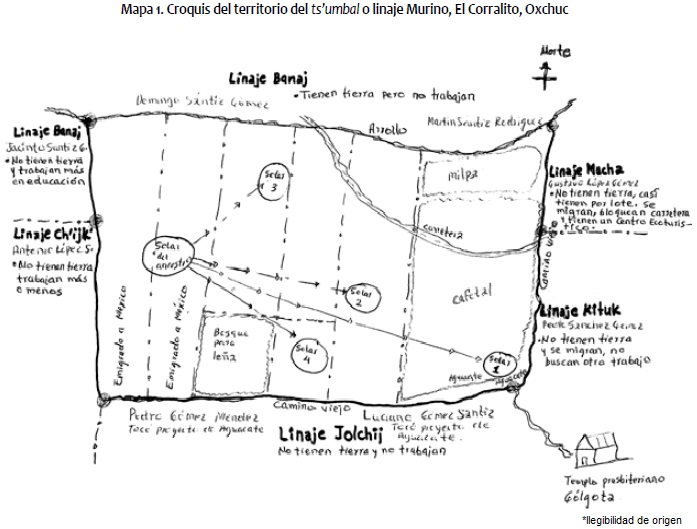 Mapa 1. Croquis del territorio del ts'umbal o linaje Murino, El Corralito, Oxchuc
Norte
Linaje Banaj
• Tienen tierra pero no trabajan
Domingo Sántiz Gómez
Martin Santiz Rodriguez
Arrollo
Linaje Banaj
Jacinto Santiz G.
• No tienen tierra
y trabajan más
en educación
milpa
Linaje Macha
Gustavo López Gómez
• No tienen tierra, casi
tienen por lote. se
migran, bloquean carretera
y tienen un Centro Ecoturis-
tico.
Solar
3
Linaje Ch'ijk'
Antonio López S.
• No tienen tierra
trabajan más
o menos
carretera
Camino
Solar
del
ancestro
Solar
2
cafetal
Emigrado a México
Emigrado a México
Bosque
para
leña
Solar
4
Solar
1
Aguacate
Aguacate
Linaje K'tuk
Pedro Sánchez Gómez
• No tienen tierra
y se migran, no
buscan otro trabajo
Camino viejo
Pedro Gómez Méndez
Tocó proyecto de Aguacate
Luciano Gómez Santiz
Tocó proyecto de
Aguacate.
Linaje Jolchij
No tienen tierra y no trabajan
Templo presbiteriano
Gólgota
*Ilegibilidad de origen